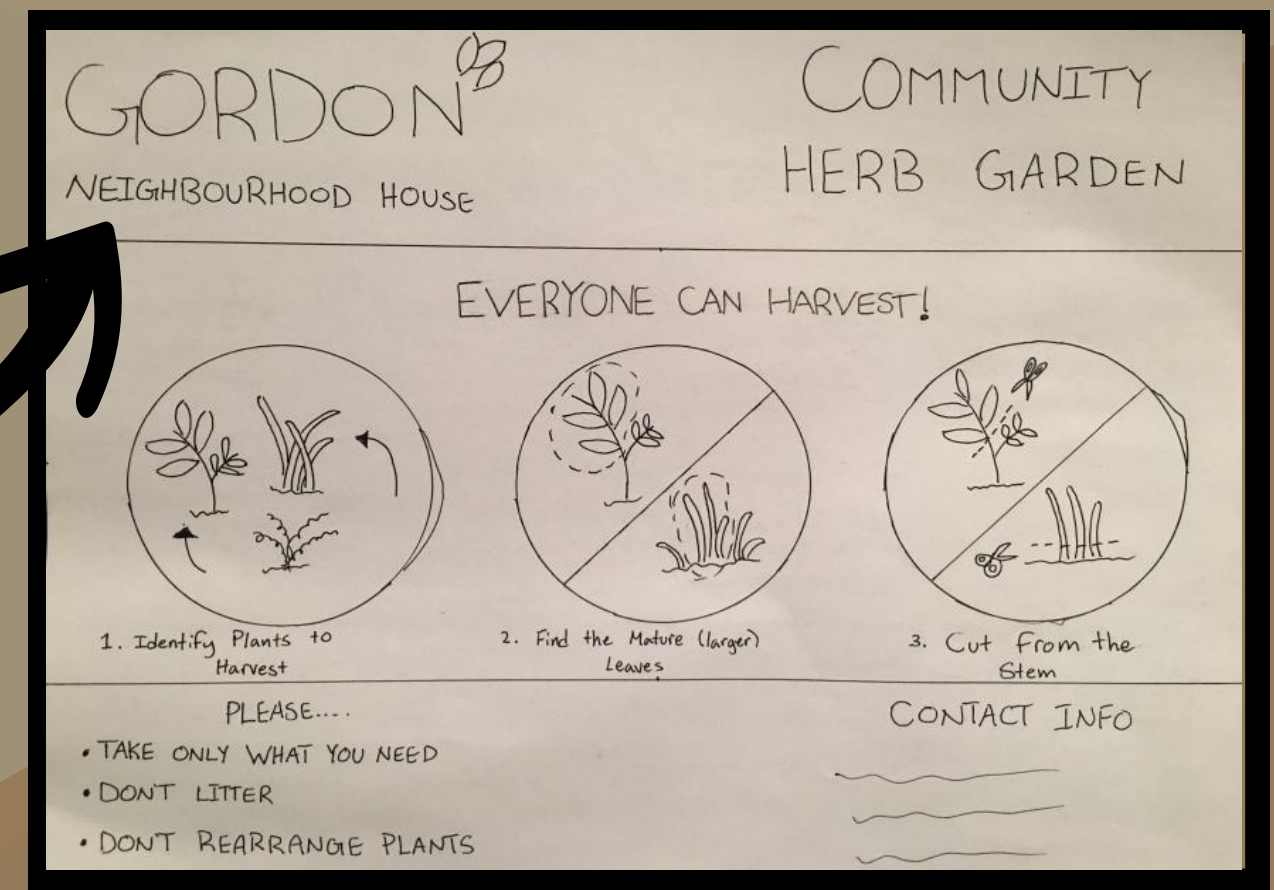 GORDON
NEIGHBOURHOOD HOUSE
COMMUNITY
HERB GARDEN
EVERYONE CAN HARVEST!
1. Identify Plants to
Harvest
2. Find the Mature (larger)
Leaves
3. Cut From the
Stem
PLEASE....
• TAKE ONLY WHAT YOU NEED
• DON'T LITTER
• DON'T REARRANGE PLANTS
CONTACT INFO